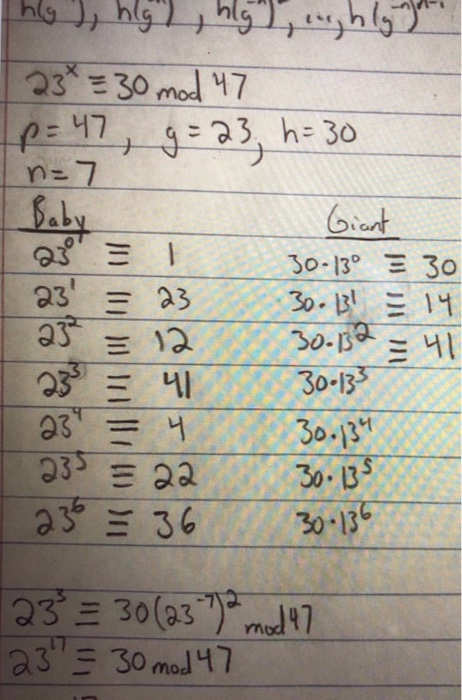 h(g⁻ⁿ), h(g⁻ⁿ)², ..., h(g⁻ⁿ)ⁿ⁻¹
23ˣ ≡ 30 mod 47
p = 47, g = 23, h = 30
n = 7
Baby Giant
23⁰ ≡ 1 30·13⁰ ≡ 30
23¹ ≡ 23 30·13¹ ≡ 14
23² ≡ 12 30·13² ≡ 41
23³ ≡ 41 30·13³
23⁴ ≡ 4 30·13⁴
23⁵ ≡ 22 30·13⁵
23⁶ ≡ 36 30·13⁶
23³ ≡ 30(23⁻⁷)² mod 47
23¹⁷ ≡ 30 mod 47